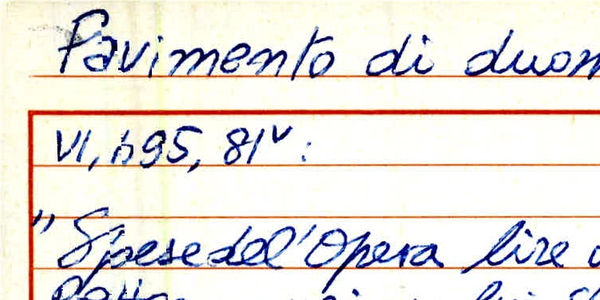 Pavimento di duom
VI, 695, 81v:
"Spese dell'Opera lire